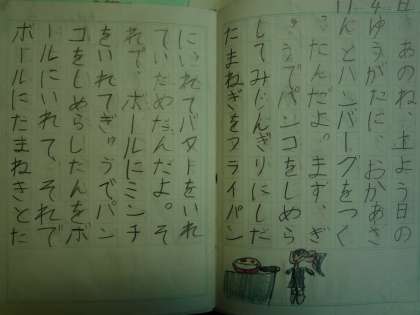 日 あのね、土よう日の
ゆうがたに、おかあさ
んとハンバーグをつく
たんだよ。まず、ぎ
うでパンコをしめら
してみじんぎりにしだ
たまねぎをフライパン
にいれてバタートをいれ
ていためたんだよ。そ
れで、ボールにミンチ
をいれてぎゅうでパン
コをしめらしたんをボ
ールにいれて、それで
ボールにたまねぎとた